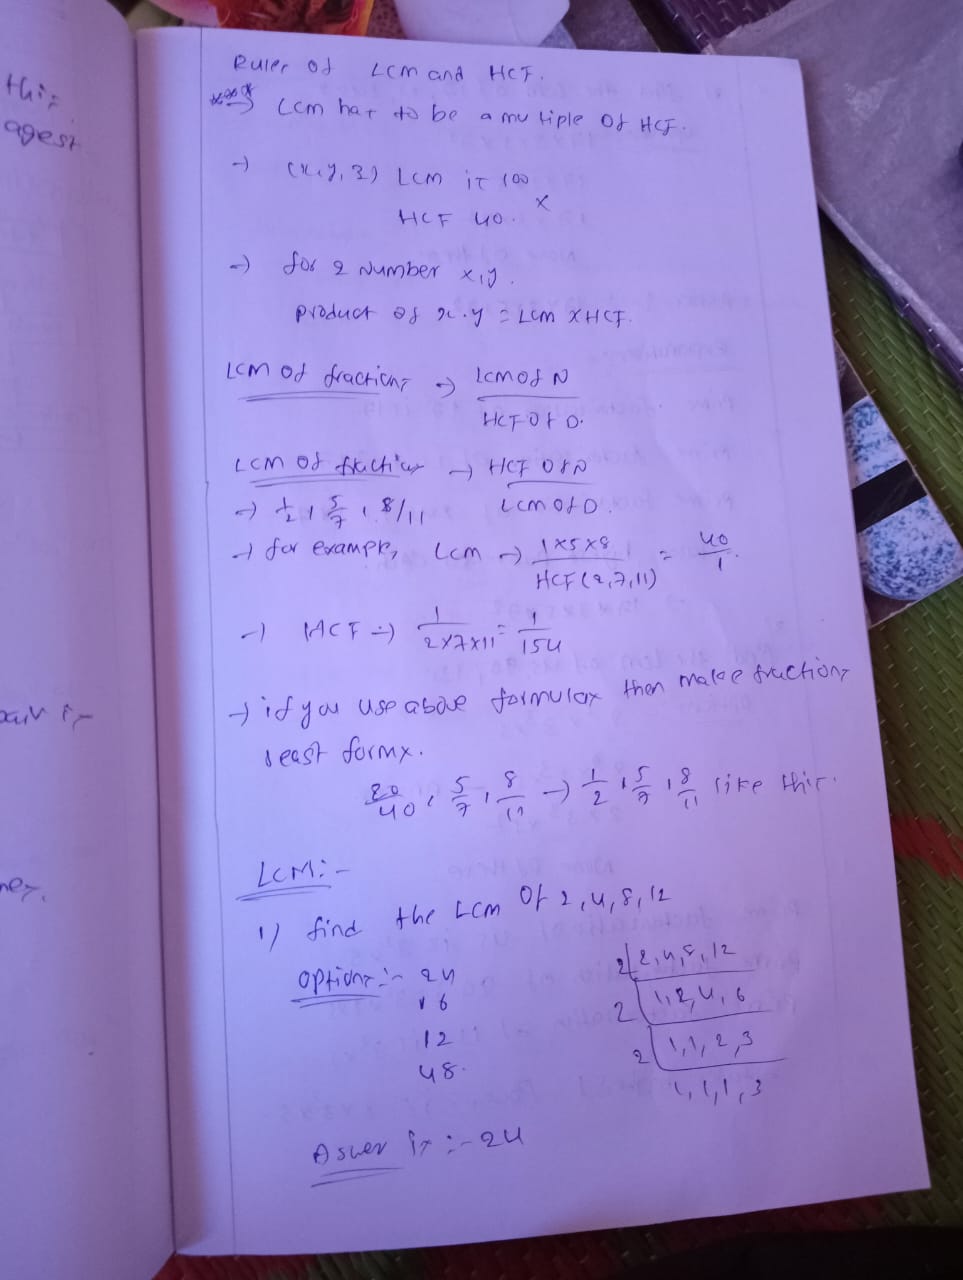 this
agest
pair is
nes.
Rules of LCM and HCF.
LCM has to be a mutiple of HCF.
→ (x,y,z) LCM is 100
HCF 40. x
→ for 2 number x,y.
product of x.y = LCM x HCF.
LCM of fractions → LCM of N
HCF of D.
LCM of fraction → HCF of N
LCM of D.
→ 1/2, 5/7, 8/11
→ for example, LCM → 1x5x8 / HCF(2,7,11) = 40/1.
→ HCF → 1/2x7x11 = 1/154
→ if you use above formulas then make fractions
least forms.
20/40, 5/7, 8/11 → 1/2, 5/7, 8/11 like this.
LCM:-
1) find the LCM of 2,4,8,12
options:- 24
16
12
48.
2 2,4,8,12
2 1,2,4,6
2 1,1,2,3
1,1,1,3
Aswer is :- 24